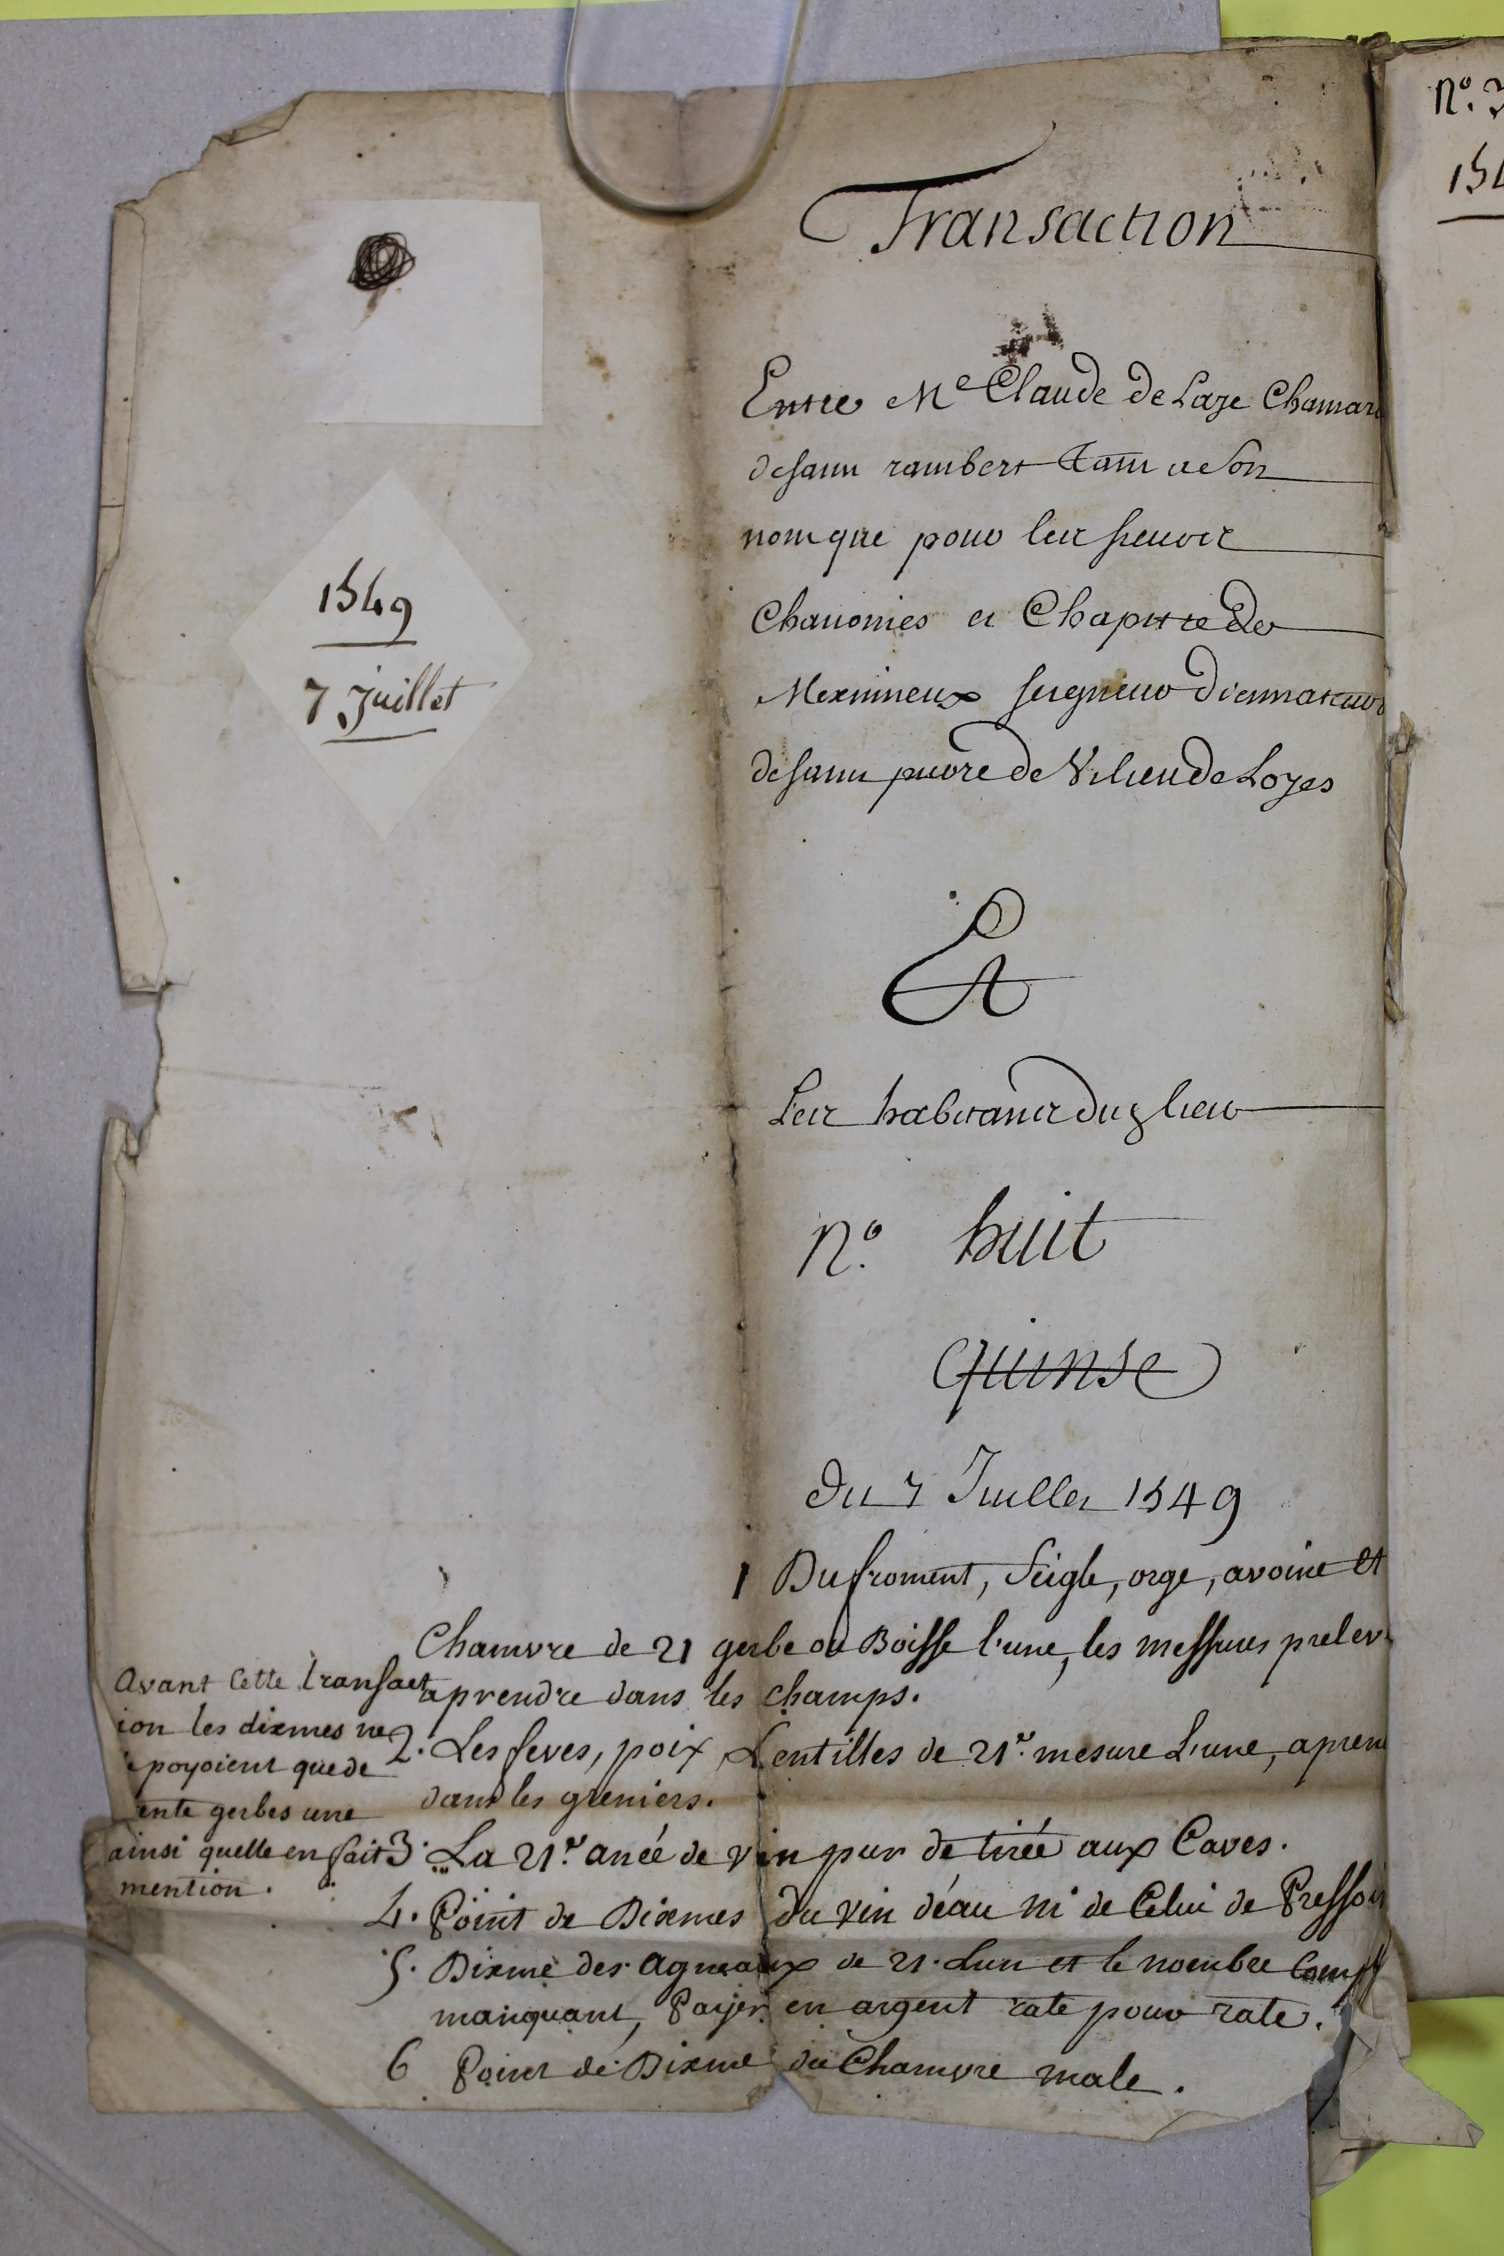 Transaction
Entre Me Claude de Laze Chamar
de saint rambert tant a son
nom que pour les sieurs
Chanoines et Chapitre de
Meximieux seigneur
de saint de Vilieu de Loyes
Et
Les habitants dud lieu
N.º huit
quinse
Du 7 Juillet 1549
1549
7 Juillet
1 Du froment, seigle, orge, avoine et
Chamvre de 21 gerbe ou Boisse l'une, les messures prelev
aprendre dans les champs.
2. Les feves, poix, Lentilles de 21e. mesure L'une, apren
dans les greniers.
3. La 21e. anée de vin pur de tirée aux Caves.
4. Point de Dixmes du vin d'eau ni de Celui de Pressoi
5. Dixme des agneaux de 21. Lun et le nombre
manquant, Payer en argent rate pour rate.
6 Point de Dixme du Chamvre male.
avant Cette transact
ion les dixmes ne
payoient que de
ente gerbes une
ainsi quelle en fait
mention.
N.º
154